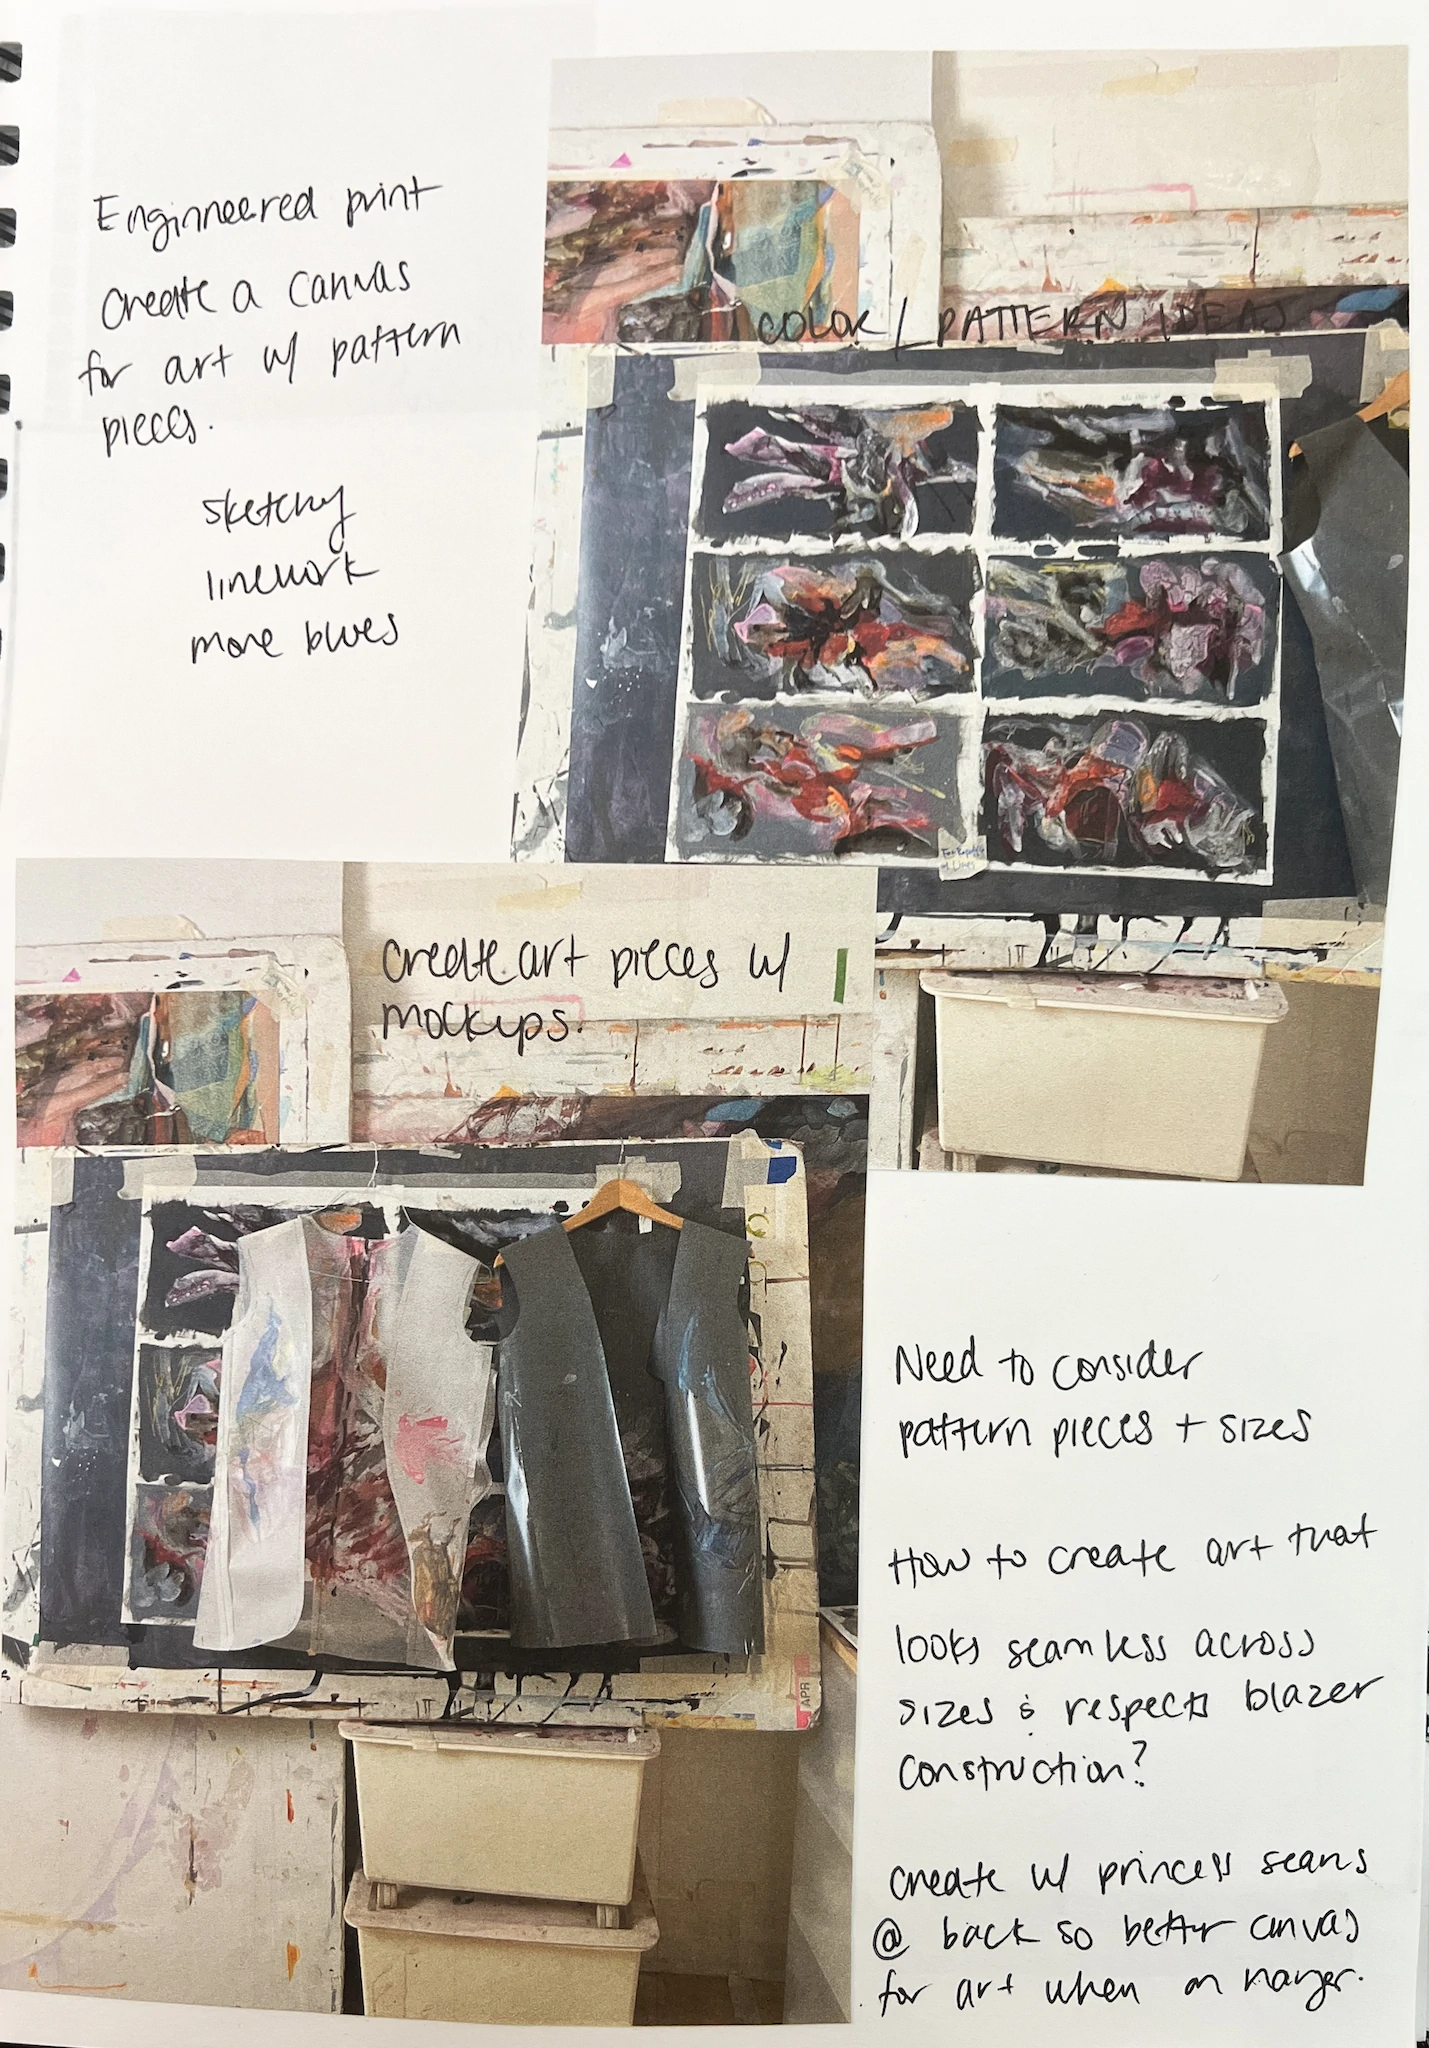 Enginneered print
Create a canvas
for art w/ pattern
pieces.
sketchy
linework
more blues
COLOR / PATTERN IDEAS
create art pieces w/
mockups.
APR
Need to consider
pattern pieces + sizes
How to create art that
looks seamless across
sizes & respects blazer
construction?
create w/ princess seams
@ back so better canvas
for art when on hanger.